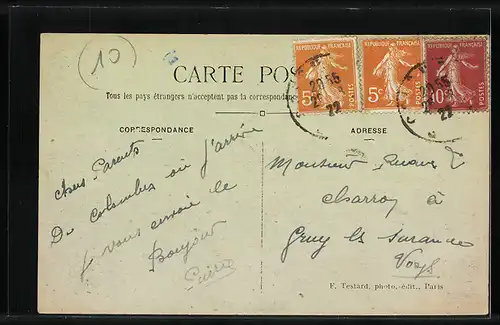 10
RÉPUBLIQUE FRANÇAISE
RÉPUBLIQUE FRANÇAISE
RÉPUBLIQUE FRANÇAISE
5c POSTES
5c POSTES
10c POSTES
22
22
CARTE POS
Tous les pays étrangers n'acceptent pas la correspondance
CORRESPONDANCE
ADRESSE
Chers Parents
De Colombes où j'arrive
je vous envoie le
Bonjour
Pierre
Monsieur
Charron à
les
Vosges
F. Testard, photo.-édit., Paris